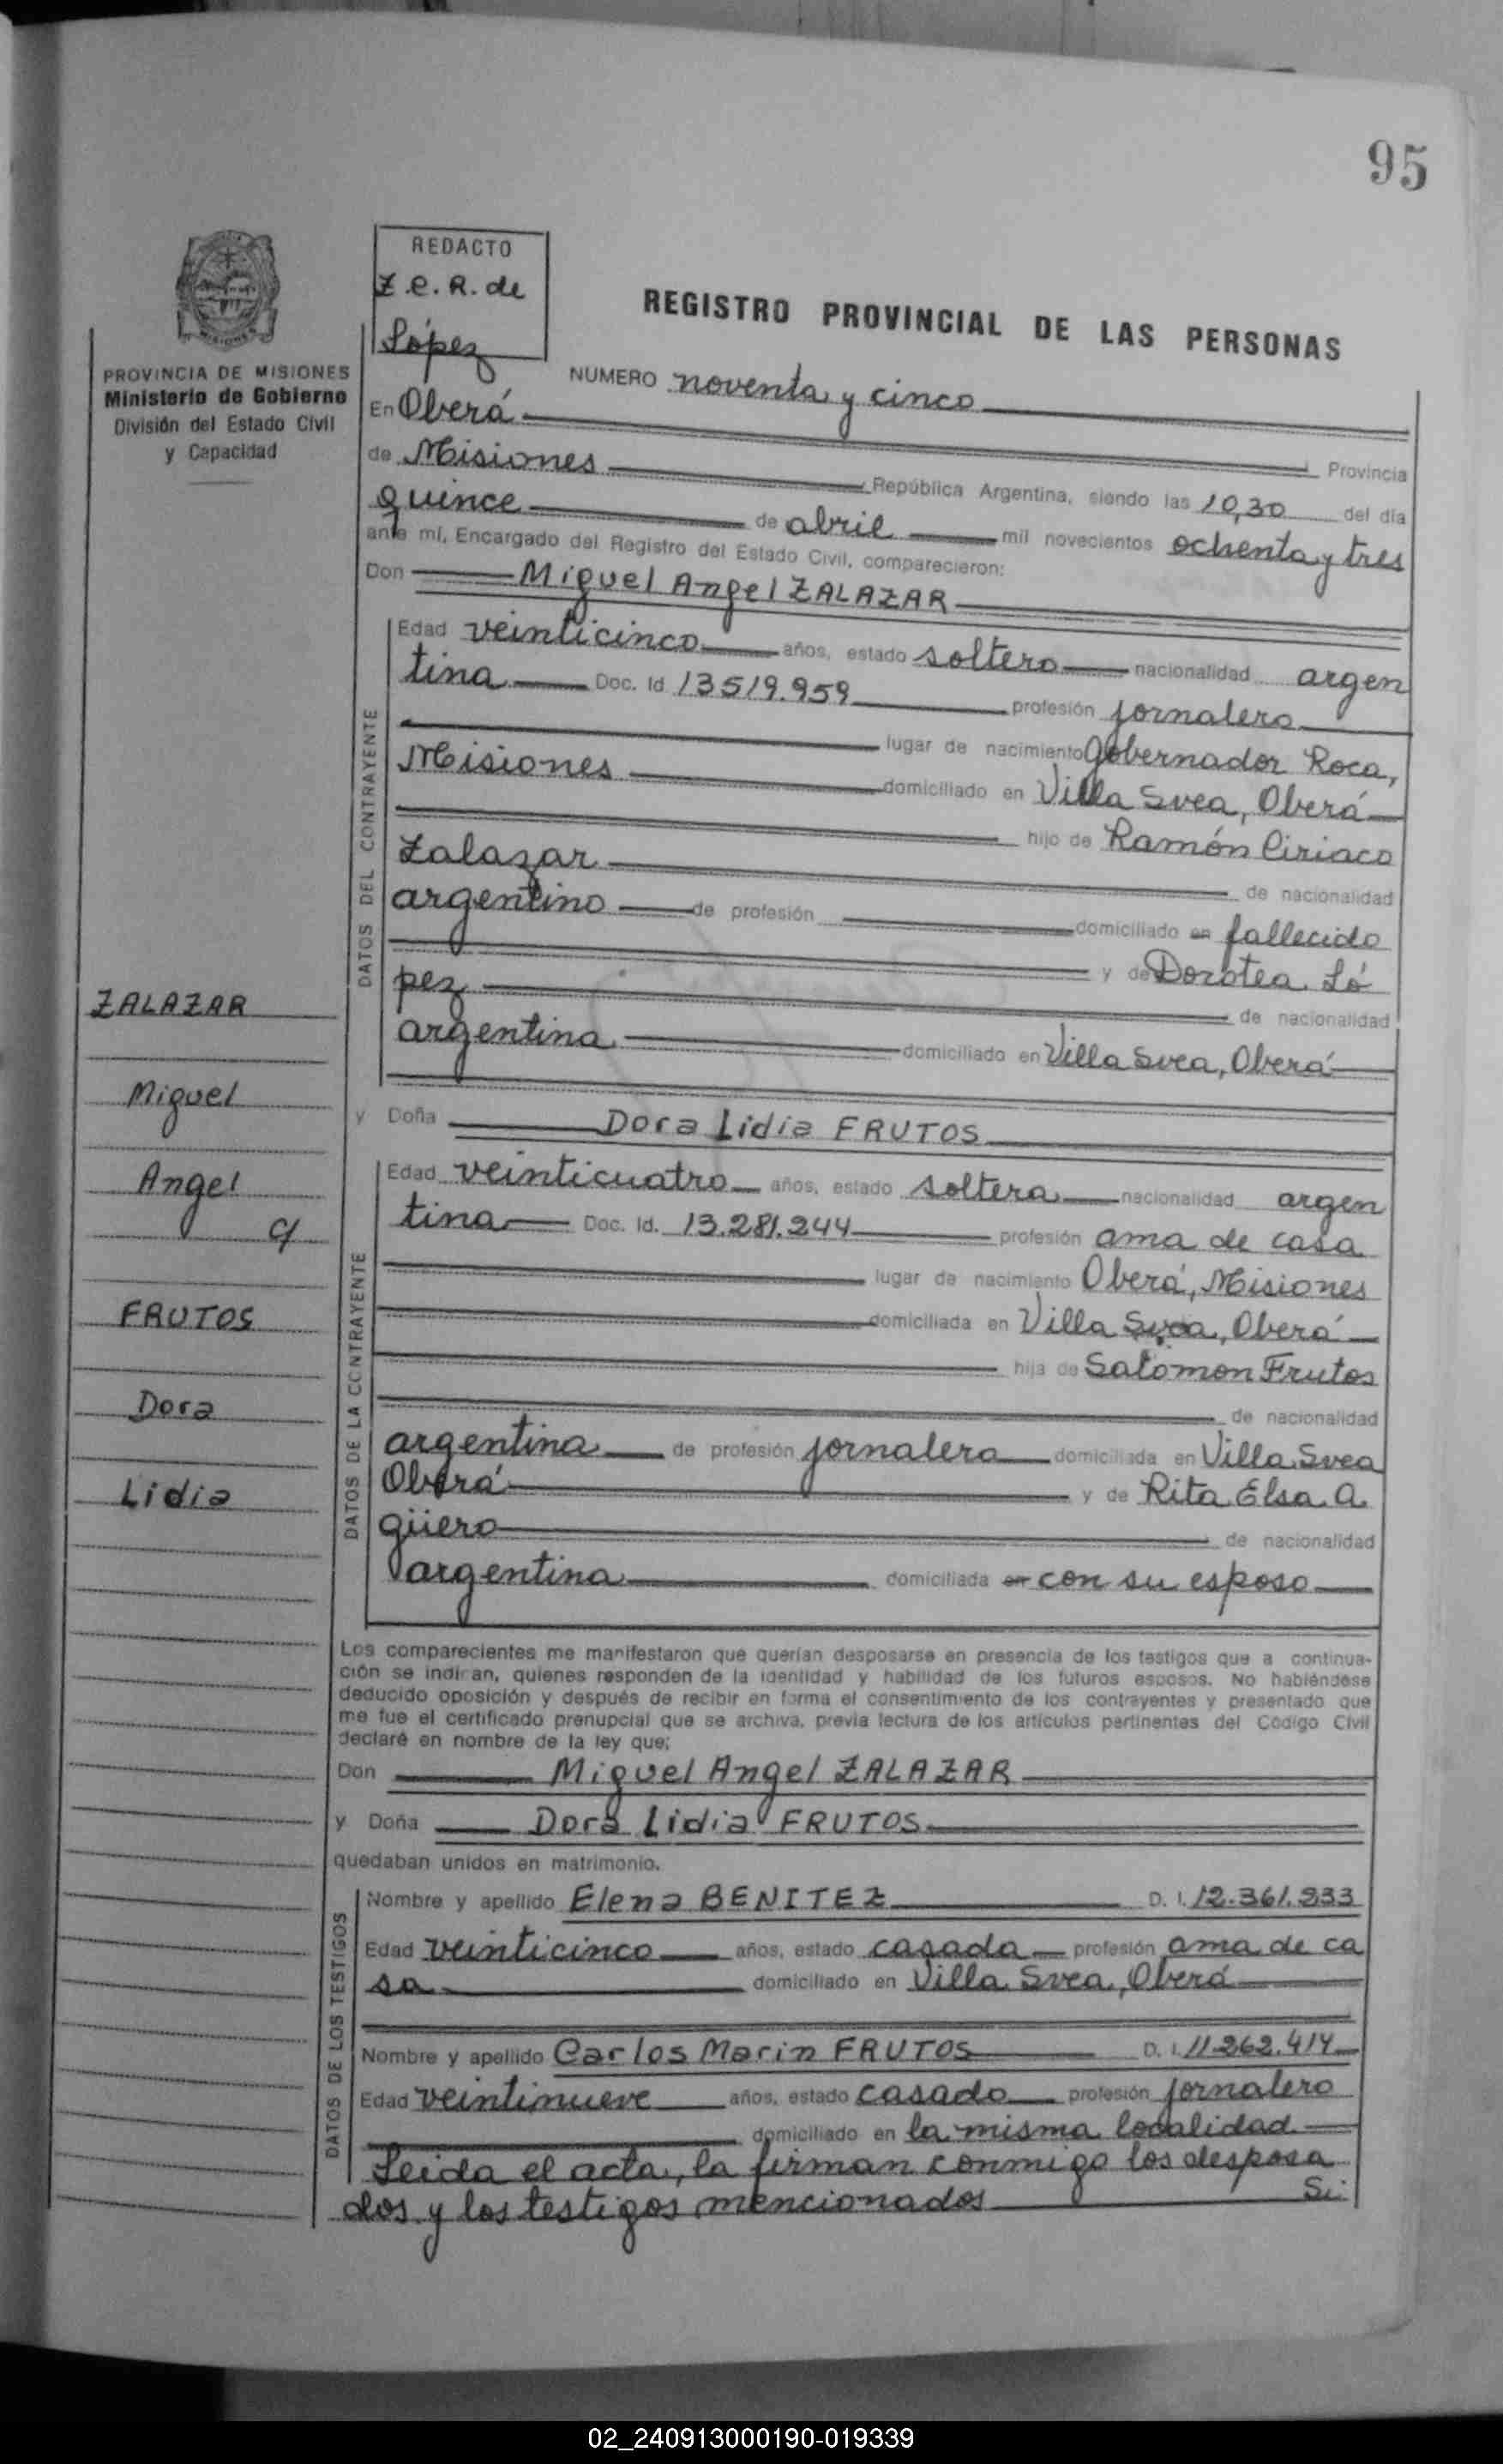 95
REDACTO
Z.e.R. de
López
REGISTRO PROVINCIAL DE LAS PERSONAS
PROVINCIA DE MISIONES
Ministerio de Gobierno
División del Estado Civil
y Capacidad
NUMERO noventa y cinco
En Oberá Provincia
de Misiones República Argentina, siendo las 10,30 del día
quince de abril mil novecientos ochenta y tres
ante mí, Encargado del Registro del Estado Civil, comparecieron:
Don Miguel Angel ZALAZAR
DATOS DEL CONTRAYENTE
Edad veinticinco años, estado soltero nacionalidad argen
tina Doc. Id. 13519.959 profesión jornalero
lugar de nacimiento Gobernador Roca,
Misiones domiciliado en Villa Svea, Oberá
hijo de Ramón Ciriaco
Zalazar de nacionalidad
argentino de profesión domiciliado en fallecido
y de Dorotea Ló
pez de nacionalidad
argentina domiciliado en Villa Svea, Oberá
y Doña Dora Lidia FRUTOS
DATOS DE LA CONTRAYENTE
Edad veinticuatro años, estado soltera nacionalidad argen
tina Doc. Id. 13.281.244 profesión ama de casa
lugar de nacimiento Oberá, Misiones
domiciliada en Villa Svea, Oberá
hija de Salomon Frutos
de nacionalidad
argentina de profesión jornalero domiciliada en Villa Svea
Oberá y de Rita Elsa A
güero de nacionalidad
argentina domiciliada en con su esposo
ZALAZAR
Miguel
Angel
c/
FRUTOS
Dora
Lidia
Los comparecientes me manifestaron que querían desposarse en presencia de los testigos que a continua-
ción se indican, quienes responden de la identidad y habilidad de los futuros esposos. No habiéndose
deducido oposición y después de recibir en forma el consentimiento de los contrayentes y presentado que
me fue el certificado prenupcial que se archiva, previa lectura de los artículos pertinentes del Código Civil
declaré en nombre de la ley que:
Don Miguel Angel ZALAZAR
y Doña Dora Lidia FRUTOS
quedaban unidos en matrimonio.
DATOS DE LOS TESTIGOS
Nombre y apellido Elena BENITEZ D. I. 12.361.233
Edad veinticinco años, estado casada profesión ama de ca
sa domiciliado en Villa Svea, Oberá
Nombre y apellido Carlos Marin FRUTOS D. I. 11.262.414
Edad veintinueve años, estado casado profesión jornalero
domiciliado en la misma localidad
Leida el acta, la firman conmigo los desposa
dos y los testigos mencionados Si:
02_240913000190-019339